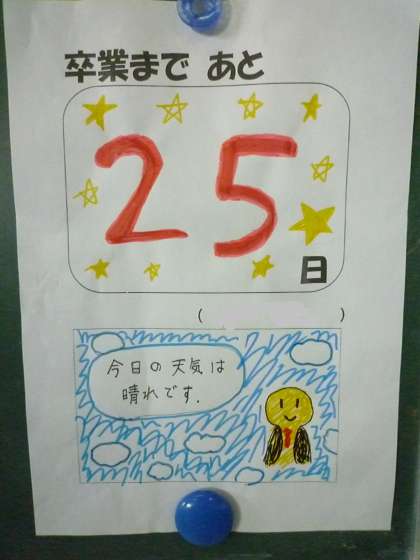 卒業まで あと
25
日
( )
今日の天気は
晴れです.